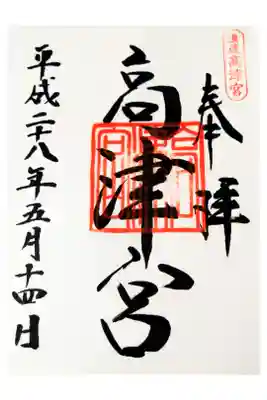 奉拝
高津宮
平成二十八年五月十四日